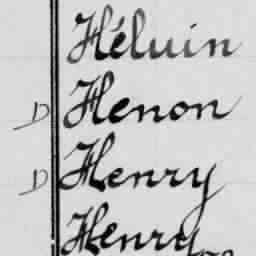 Héluin
D Henon
D Henry
Henry